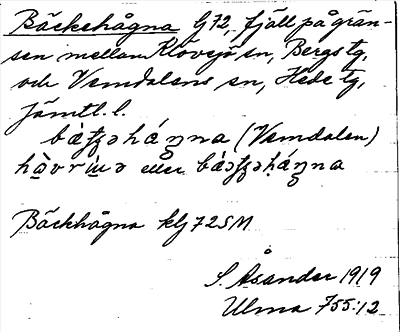 Bäckehågna G72, fjäll på grän-
sen mellan Klövsjö sn, Bergs tg,
och Vemdalens sn, Hede tg,
Jämtl. l.
(Vemdalen)
eller
Bäckhågna klf 72SM
S. Åsander 1919
Ulma 755:12